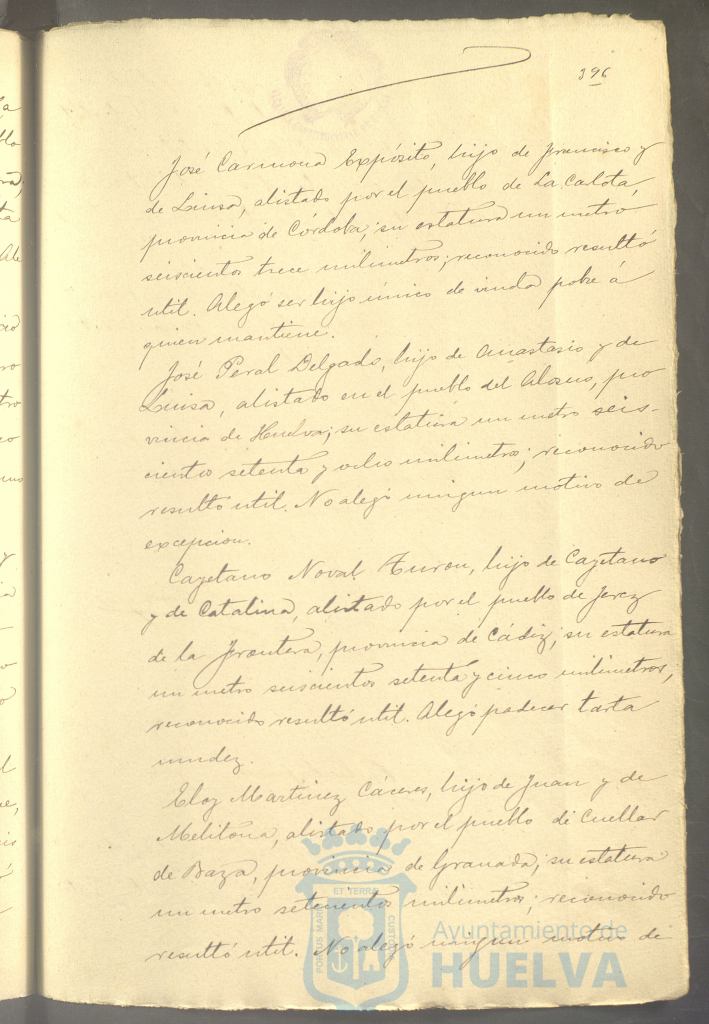 396
José Carmona Expósito, hijo de Francisco y
de Luisa, alistado por el pueblo de La Calota,
provincia de Córdoba; su estatura un metro
seiscientos trece milimetros; reconocido resultó
util. Alegó ser hijo único de viuda pobre á
quien mantiene.
José Peral Delgado, hijo de Anastasio y de
Luisa, alistado en el pueblo del Alosno, pro
vincia de Huelva; su estatura un metro seis-
cientos setenta y ocho milimetros; reconocido
resultó util. No alegó ningun motivo de
excepcion.
Cayetano Noval Turon, hijo de Cayetano
y de Catalina, alistado por el pueblo de Jerez
de la Frontera, provincia de Cádiz; su estatura
un metro seiscientos setenta y cinco milimetros;
reconocido resultó util. Alegó padecer tarta
mudez.
Eloy Martinez Cáceres, hijo de Juan y de
Melitona, alistado por el pueblo de Cuellar
de Baza, provincia de Granada; su estatura
un metro setecientos milimetros; reconocido
resultó util. No alegó ningun motivo de
PORTUS MARIS
ET TERRÆ
CUSTODIA
Ayuntamiento de
HUELVA